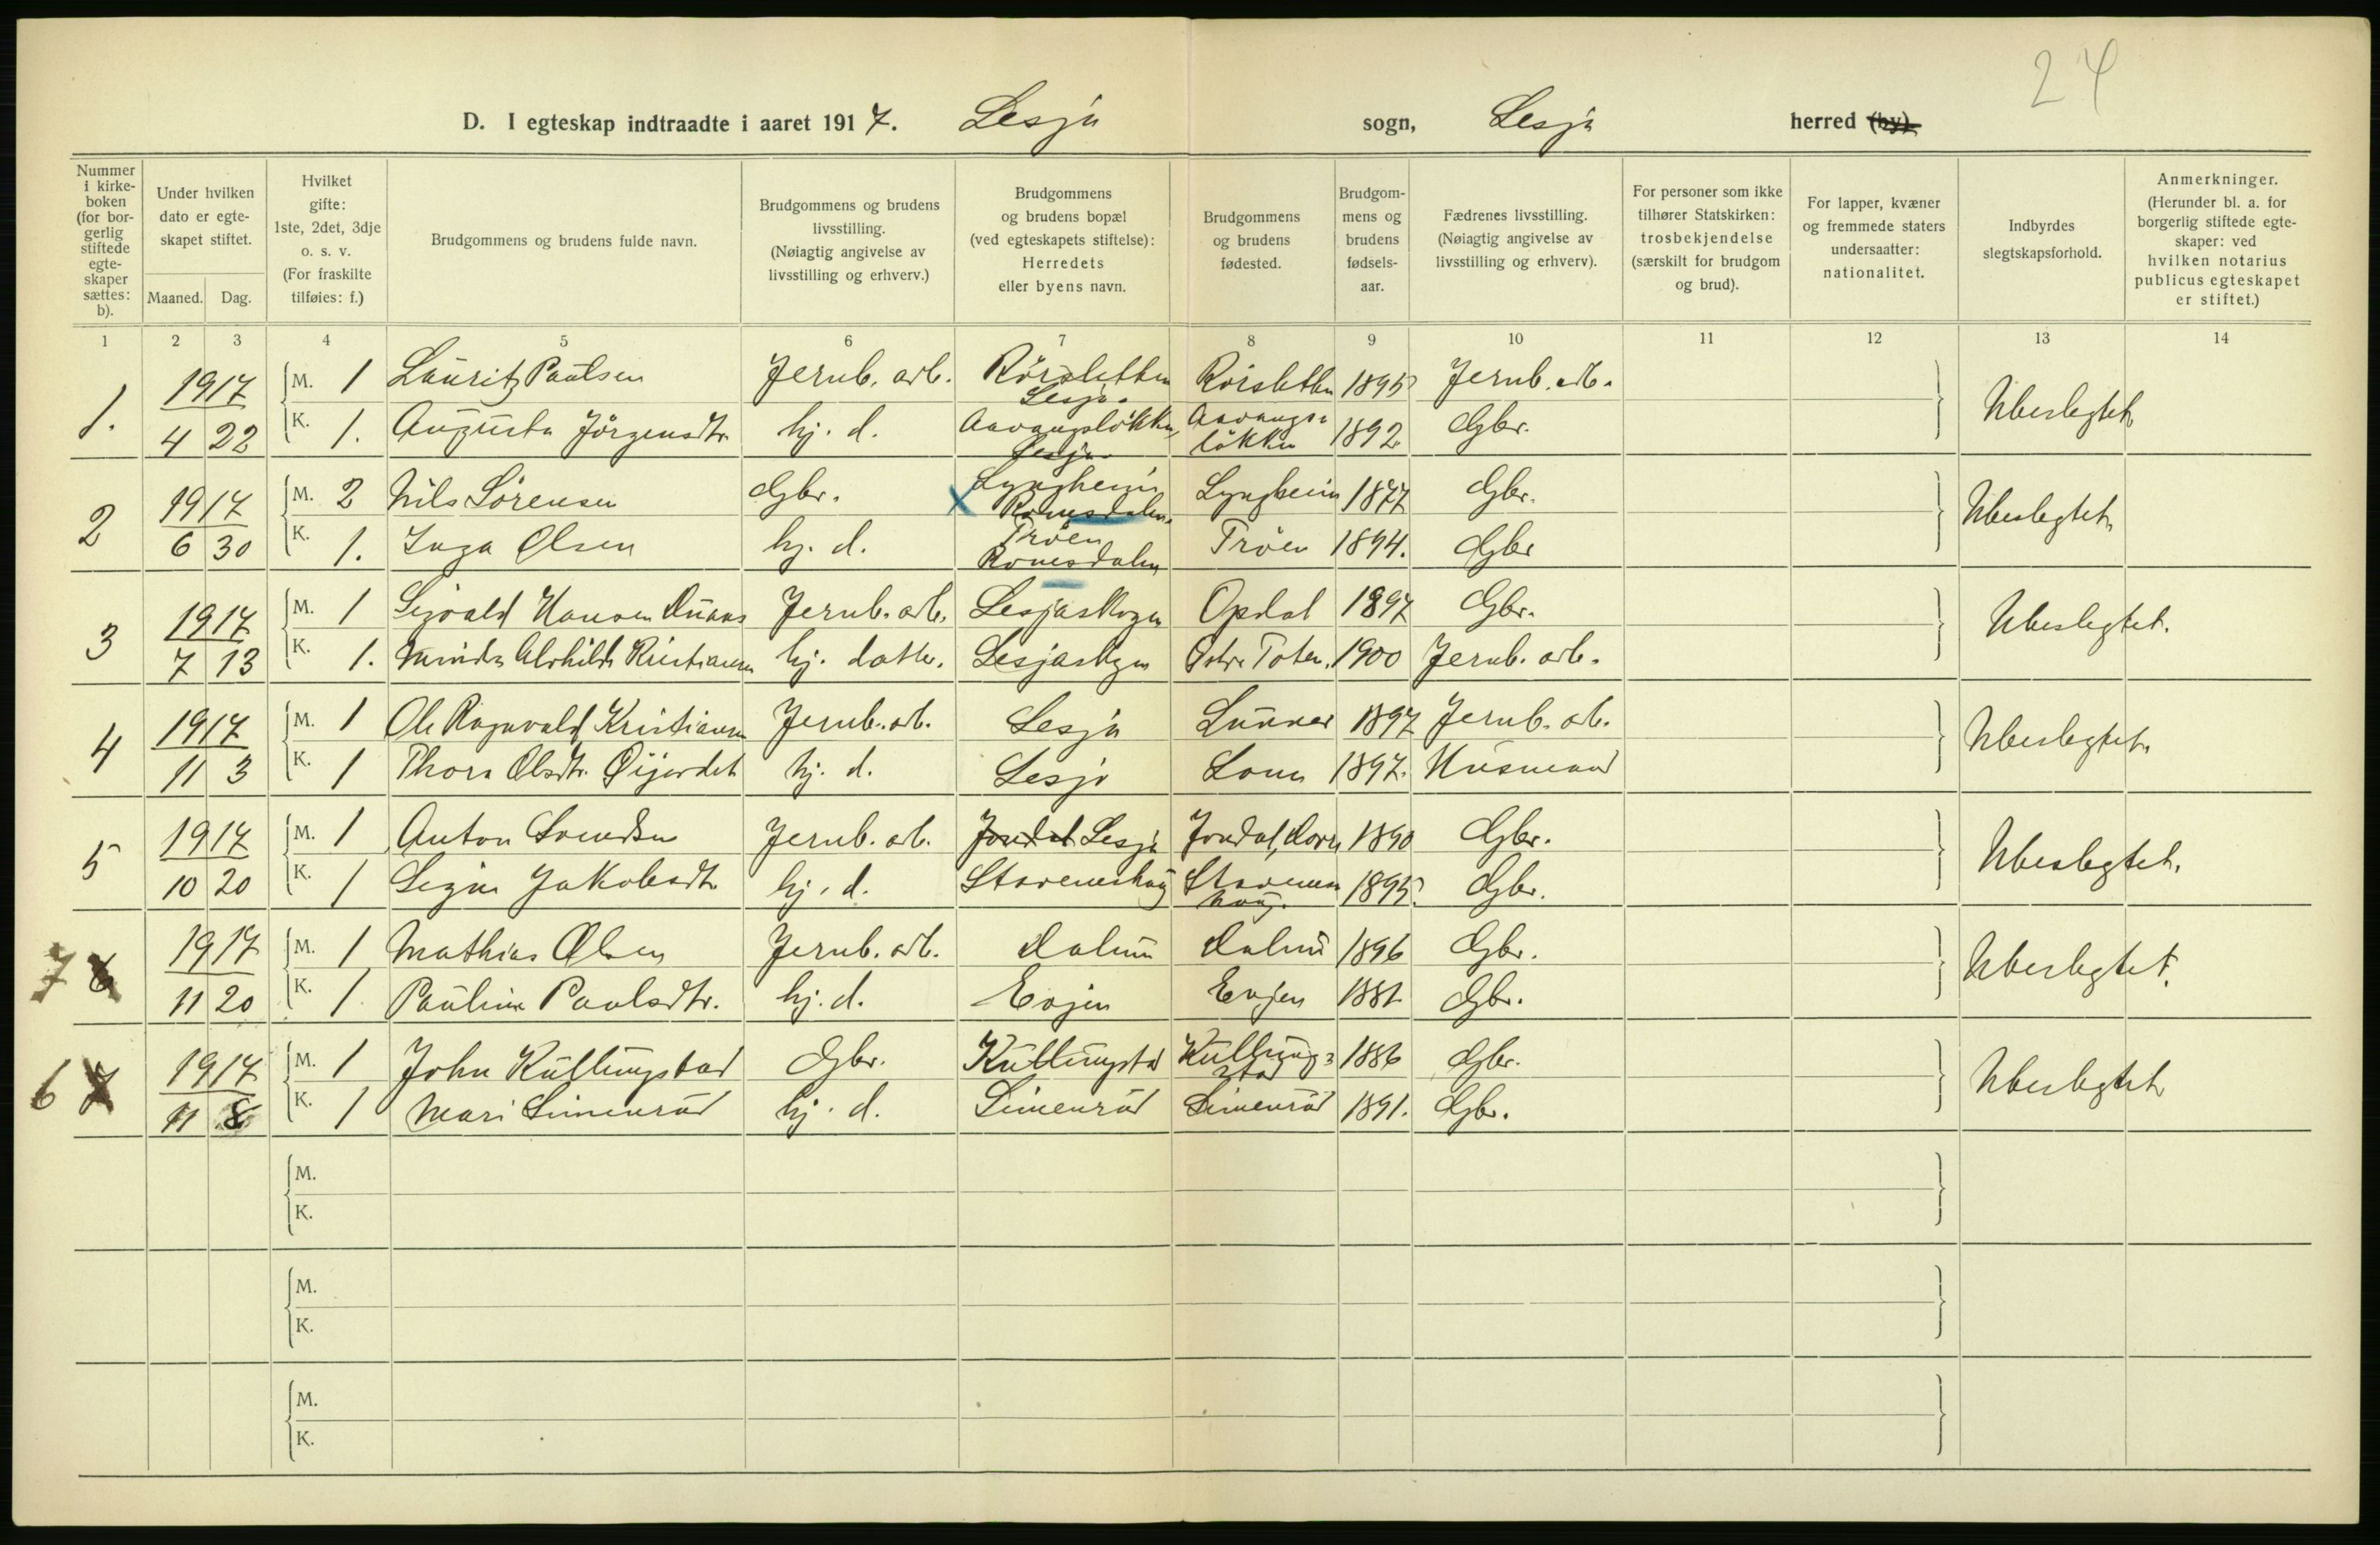 24
D. I egteskap indtraadte i aaret 1917. Lesja sogn, Lesja herred (by).
Nummer i kirke-boken (for bor-gerlig stiftede egte-skaper sættes: b).
Under hvilken dato er egte-skapet stiftet.
Maaned. Dag.
Hvilket gifte: 1ste, 2det, 3dje o. s. v. (For fraskilte tilføies: f.)
Brudgommens og brudens fulde navn.
Brudgommens og brudens livsstilling. (Nøiagtig angivelse av livsstilling og erhverv.)
Brudgommens og brudens bopæl (ved egteskapets stiftelse): Herredets eller byens navn.
Brudgommens og brudens fødested.
Brudgom-mens og brudens fødsels-aar.
Fædrenes livsstilling. (Nøiagtig angivelse av livsstilling og erhverv).
For personer som ikke tilhører Statskirken: trosbekjendelse (særskilt for brudgom og brud).
For lapper, kvæner og fremmede staters undersaatter: nationalitet.
Indbyrdes slegtskapsforhold.
Anmerkninger. (Herunder bl. a. for borgerlig stiftede egte-skaper: ved hvilken notarius publicus egteskapet er stiftet.)
1 2 3 4 5 6 7 8 9 10 11 12 13 14
1. 1917 M. 1 Lauritz Paulsen Jernb. arb. Rörsletten Lesja. Rörsletten 1895 Jernb. arb. Ubeslegtet
4 22 K. 1. Augusta Jörgensdtr. hj. d. Aavangsløkken, Lesja Aavangs-løkken 1892 Gbr.
2 1917 M. 2 Nils Sörensen Gbr. X Lyngheim Romsdalen. Lyngheim 1877 Gbr. Ubeslegtet.
6 30 K. 1. Inga Olsen hj. d. Tröen Romsdalen Tröen 1894. Gbr
3 1917 M. 1 Sigvald Hansen Jernb. arb. Lesjaskogen Opdal 1897 Gbr. Ubeslegtet.
7 13 K. 1. Alvhilde Kristiansen hj. datter. Lesjaskogen Østre Toten. 1900 Jernb. arb.
4 1917 M. 1 Ole Ragnvald Kristiansen Jernb. arb. Lesja Lunner 1897 Jernb. arb. Ubeslegtet.
11 3 K. 1 Thora Olsdtr. Öijordet hj. d. Lesja Lom 1897. Husmand
5 1917 M. 1 Anton Svendsen Jernb. arb. Jondal Lesja Jondal, 1890 Gbr. Ubeslegtet.
10 20 K. 1 Signe Jakobsdtr. hj. d. Stavemshaug Stavems haug. 1895. Gbr.
7 6 1917 M. 1 Mathias Olsen Jernb. arb. Dalum Dalum 1896 Gbr. Ubeslegtet.
11 20 K. 1 Pauline Paulsdtr. hj. d. Enjen Enjen 1881 Gbr.
6 7 1917 M. 1 John Kullingstad Gbr. Kullingstad Kulling-stad 1886 Gbr. Ubeslegtet
11 8 K. 1 Mari Simenrud hj. d. Simenrud Simenrud 1891. Gbr.
M.
K.
M.
K.
M.
K.